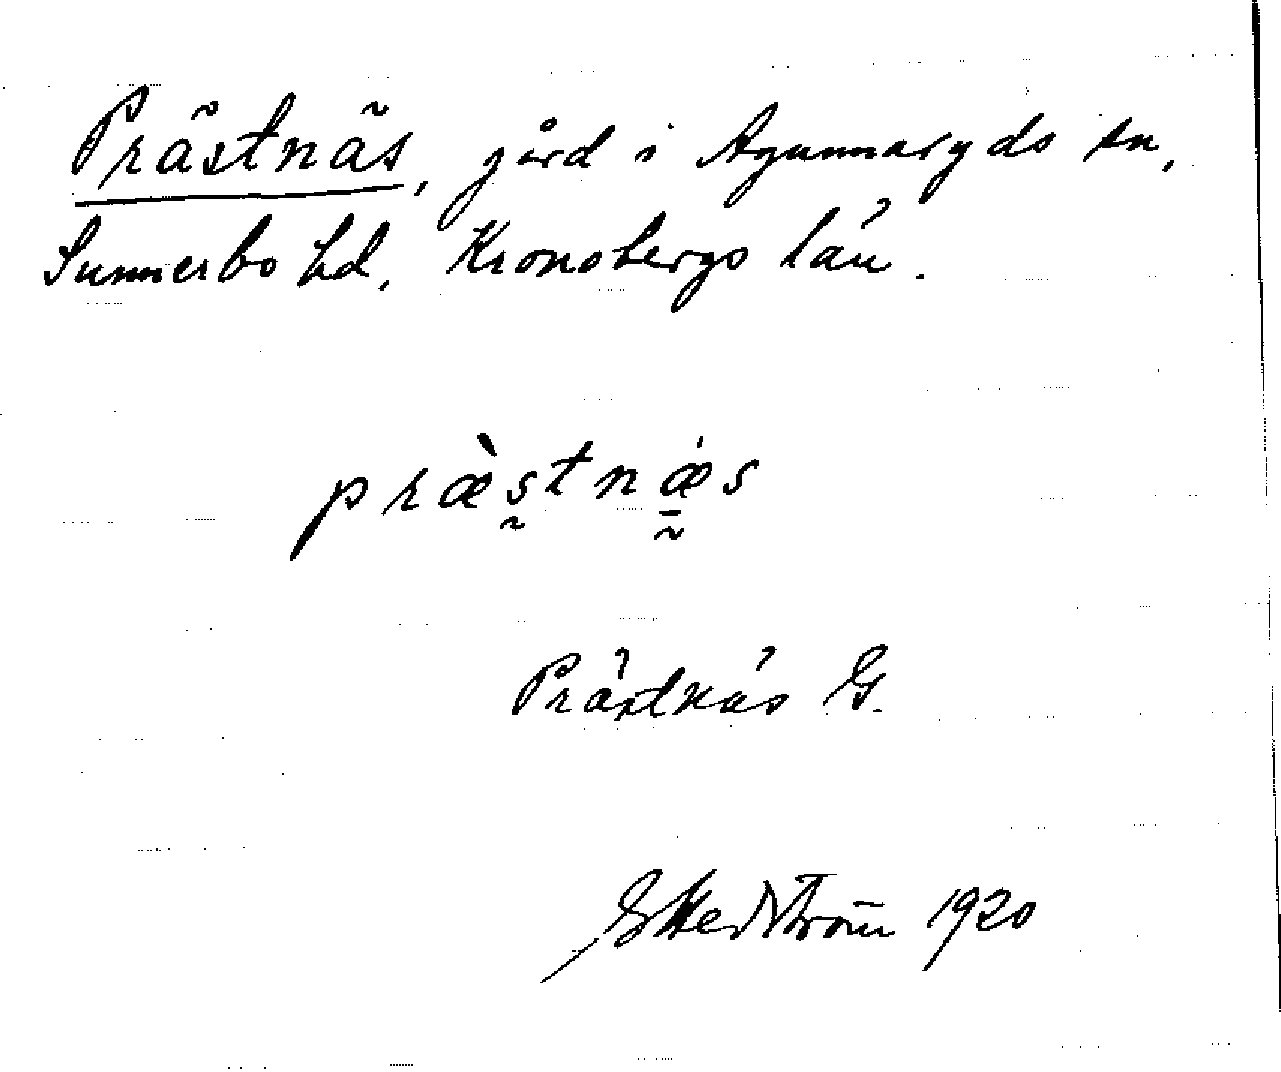 Prästnäs, gård i Agunnaryds sn,
Sunnerbo hd, Kronobergs län.
præ̀s̰tnǽ̠̰s
Prästnäs G.
G Hedström 1920